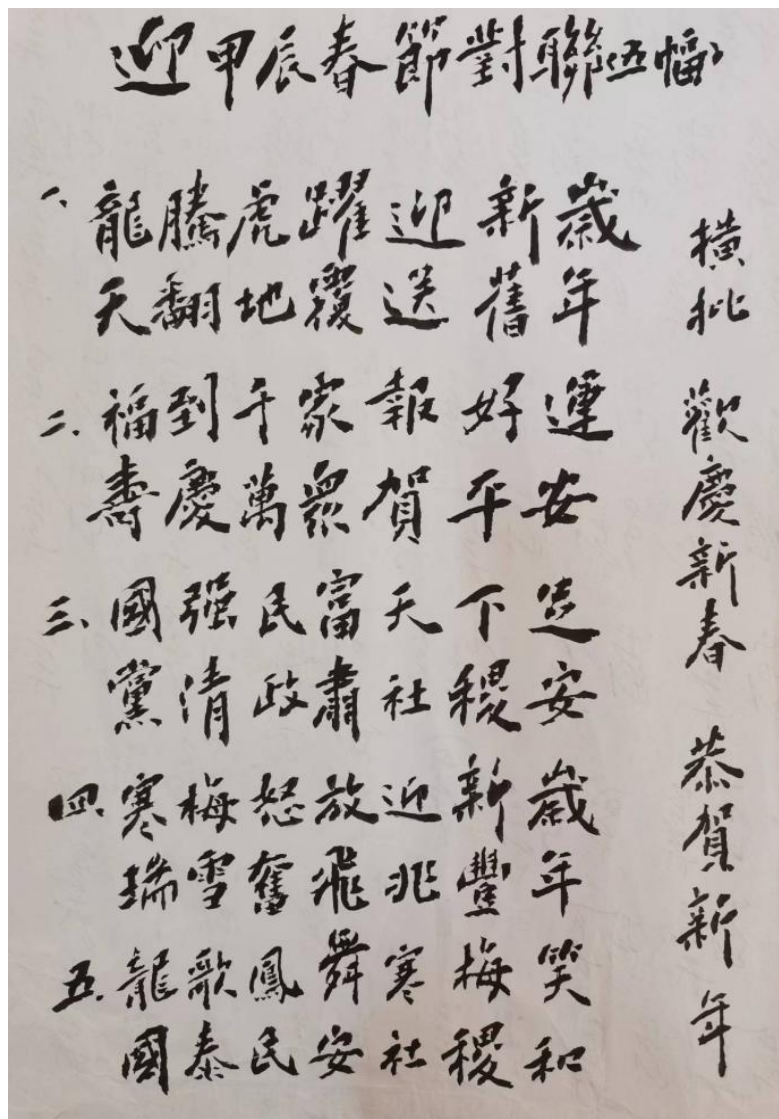 迎甲辰春節對聯伍幅
一、龍騰虎躍迎新歲
天翻地覆送舊年
二、福到千家報好運
壽慶萬眾賀平安
三、國強民富天下定
黨清政肅社稷安
四、寒梅怒放迎新歲
瑞雪奮飛兆豐年
五、龍歌鳳舞寒梅笑
國泰民安社稷和
橫批 歡慶新春 恭賀新年